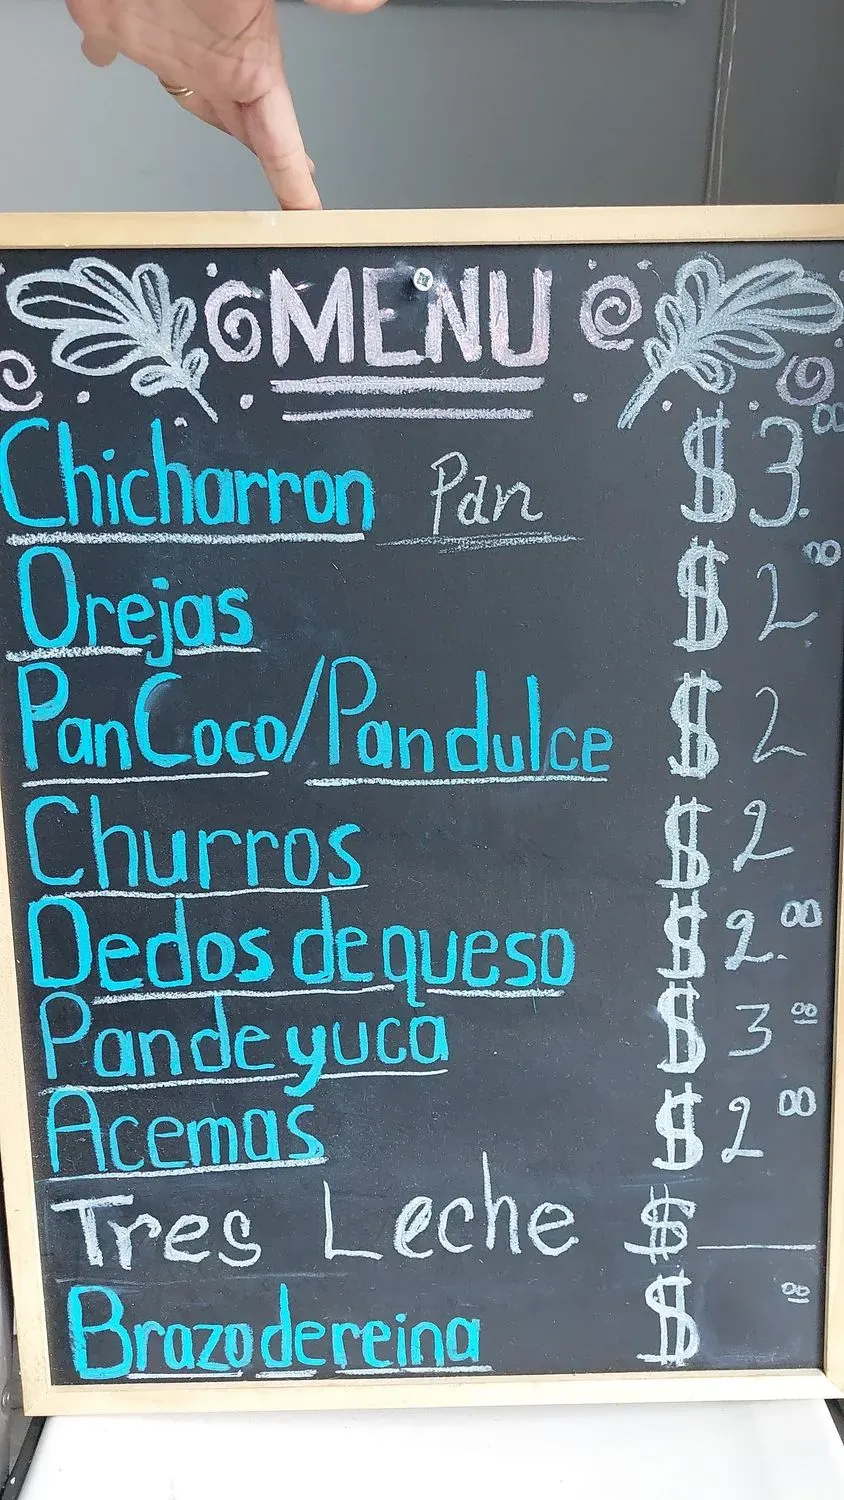 MENU
Chicharron Pan $3.00
Orejas $2.00
Pan Coco/Pan dulce $2
Churros $2
Dedos de queso $2.00
Pan de yuca $3 00
Acemas $2 00
Tres Leche $
Brazo de reina $ 00